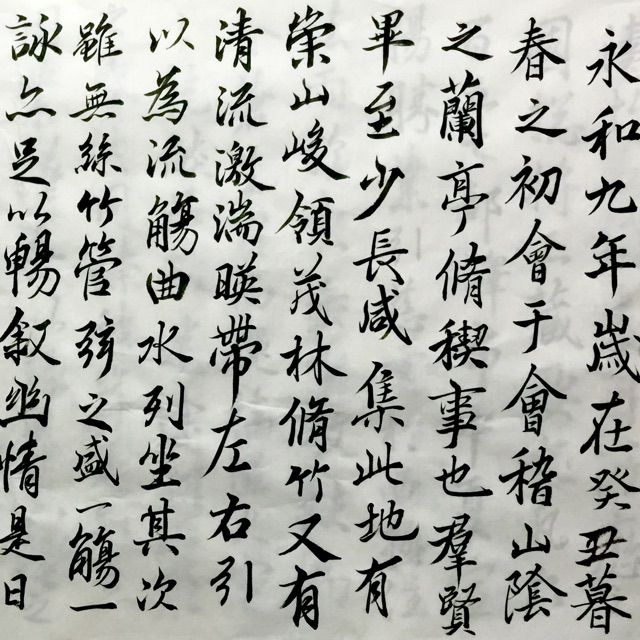 永和九年歲在癸丑暮
春之初會于會稽山陰
之蘭亭脩稧事也羣賢
畢至少長咸集此地有
崇山峻領茂林脩竹又有
清流激湍暎帶左右引
以為流觴曲水列坐其次
雖無絲竹管弦之盛一觴一
詠亦足以暢叙幽情是日